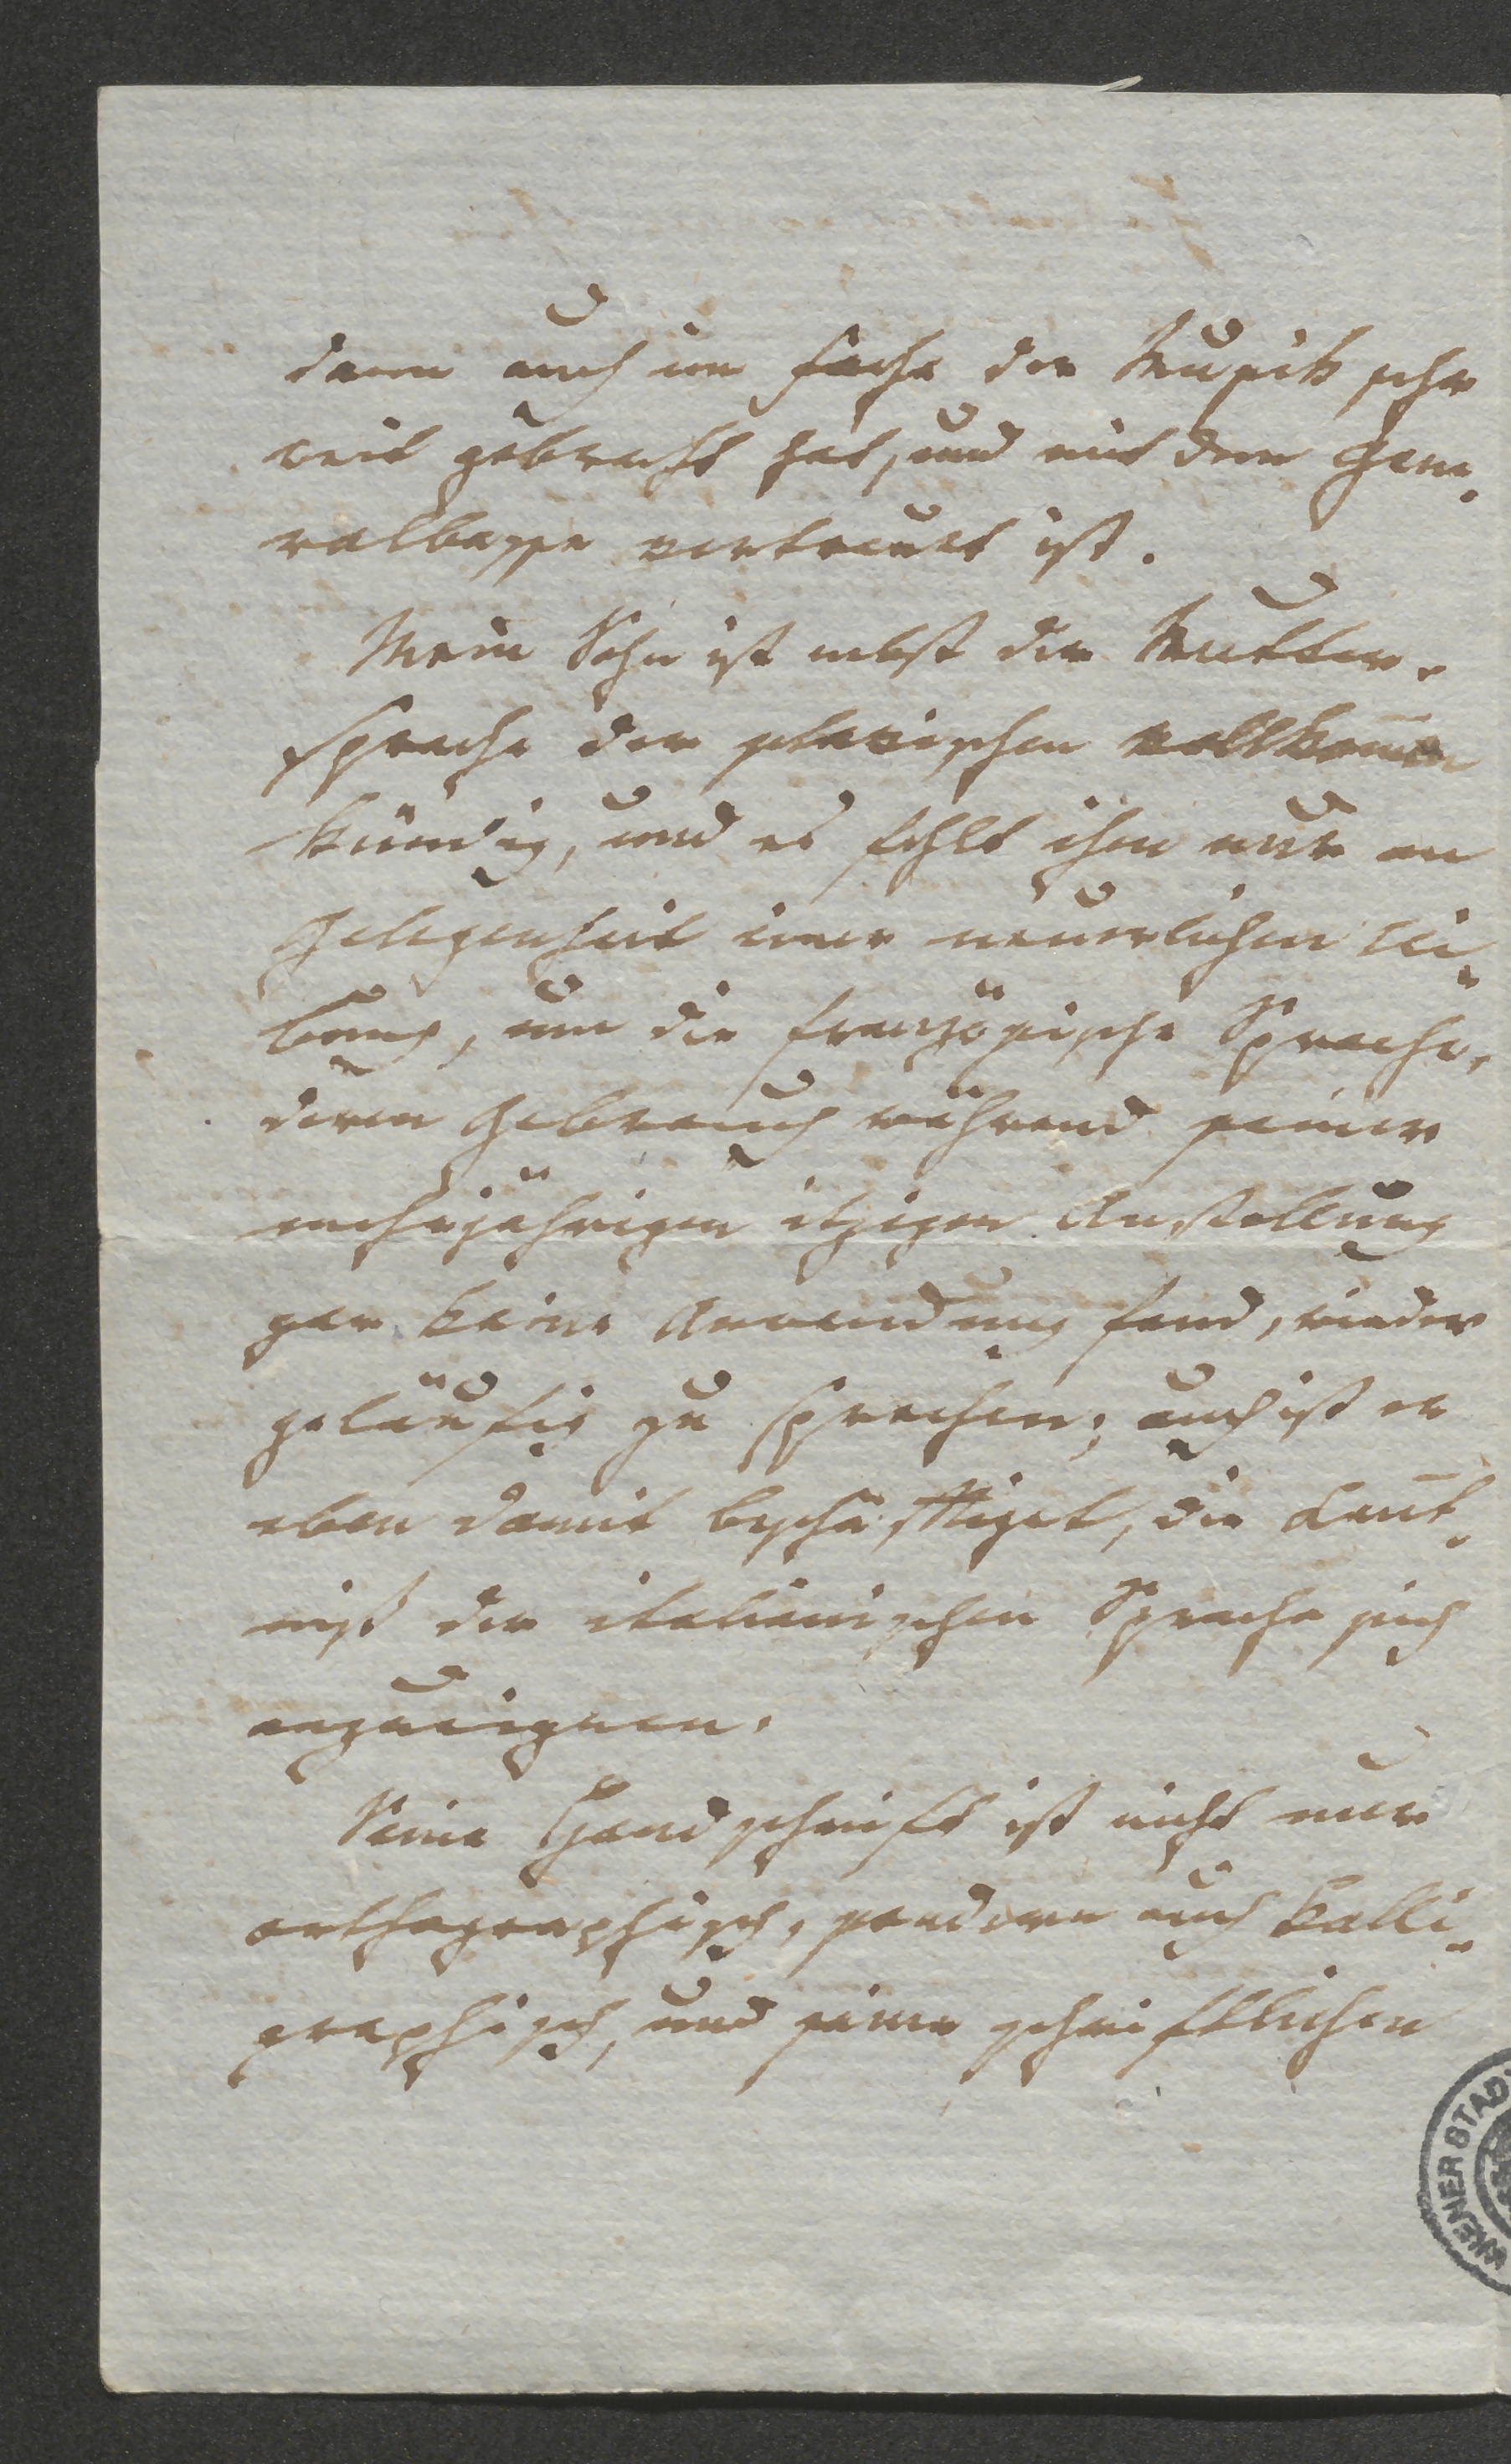 dann auch im Fache der Musik sehr
weit gebracht hat, und mit dem Gene-
ralbasse vertraut ist.
Mein Sohn ist nebst der Mutter-
sprache der slavischen vollkom̅en
kündig, und es fehlt ihm nur an
Gelegenheit einer neuerlichen Ui-
bung, um die französische Sprache,
deren Gebrauch während seiner
mehrjährigen itzigen Anstellung
gar keine Anwendung fand, wieder
geläufig zu sprechen; auch ist er
eben damit beschäftiget, die Ken̅t-
niß der italienischen Sprache sich
anzueignen.
Seine Handschrift ist nicht nur
orthographisch, sondern auch kalli-
graphisch, und seine schriftlichen
WIENER STAD